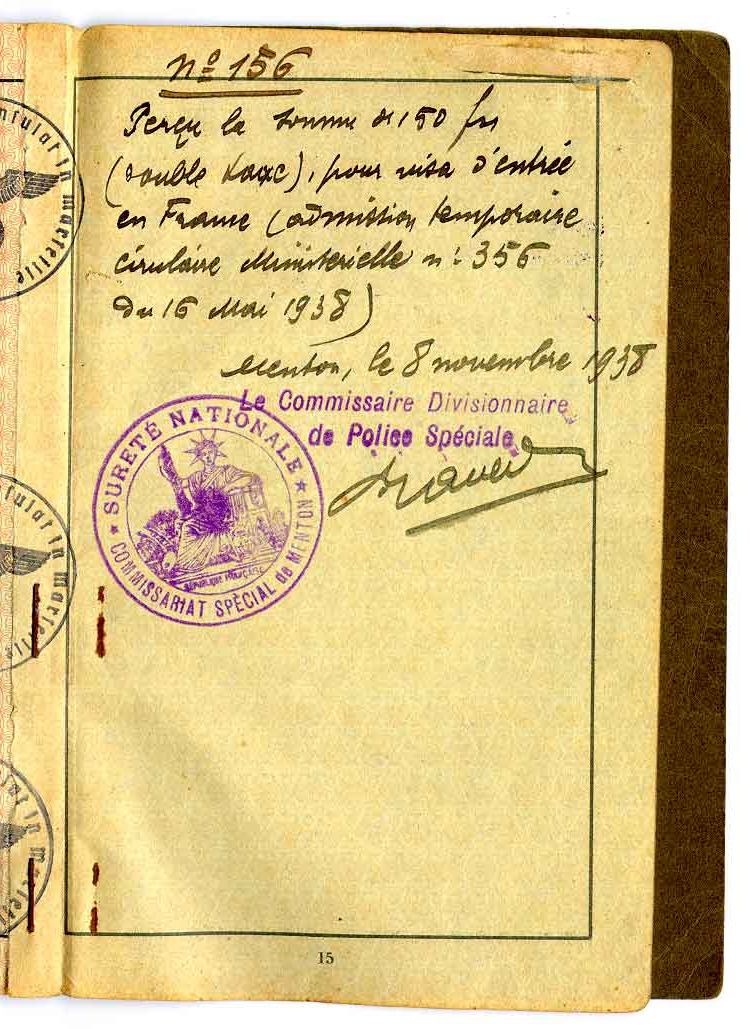 nº 156
Perçu la somme de 150 frs
(double taxe), pour visa d'entrée
en France (admission temporaire
circulaire Ministerielle nº 356
du 16 Mai 1938)
Menton, le 8 novembre 1938
Le Commissaire Divisionnaire
de Police Spéciale
★ SURETÉ NATIONALE ★
COMMISSARIAT SPÉCIAL DE MENTON
RÉPUBLIQUE FRANÇAISE
nsulat in Marseille
sulat in Marseille
ulat in Marseille
15